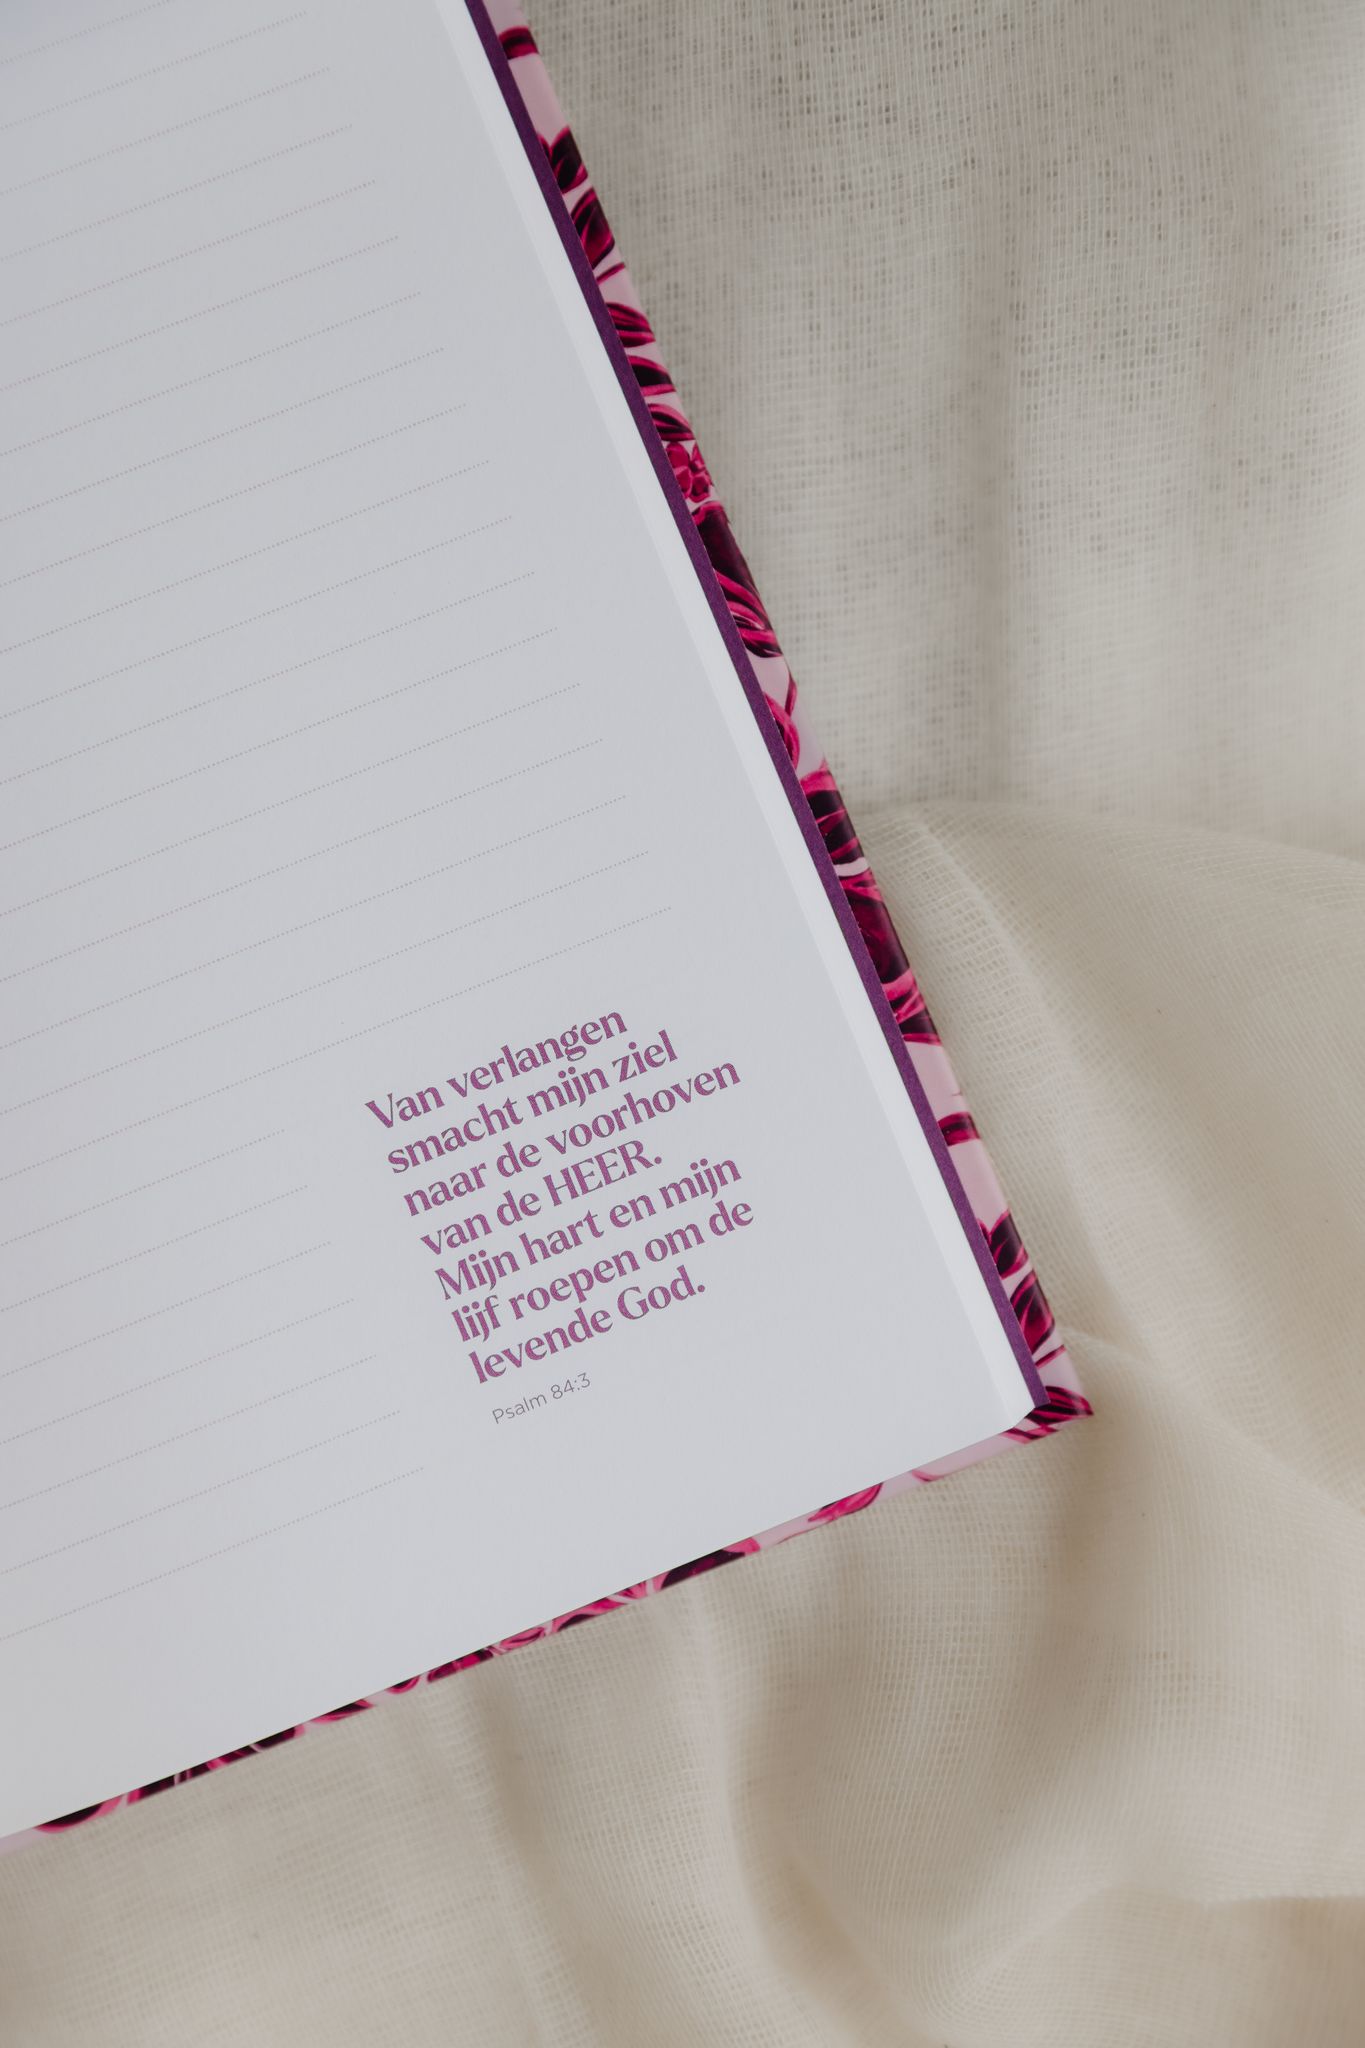 Van verlangen
smacht mijn ziel
naar de voorhoven
van de HEER.
Mijn hart en mijn
lijf roepen om de
levende God.
Psalm 84:3